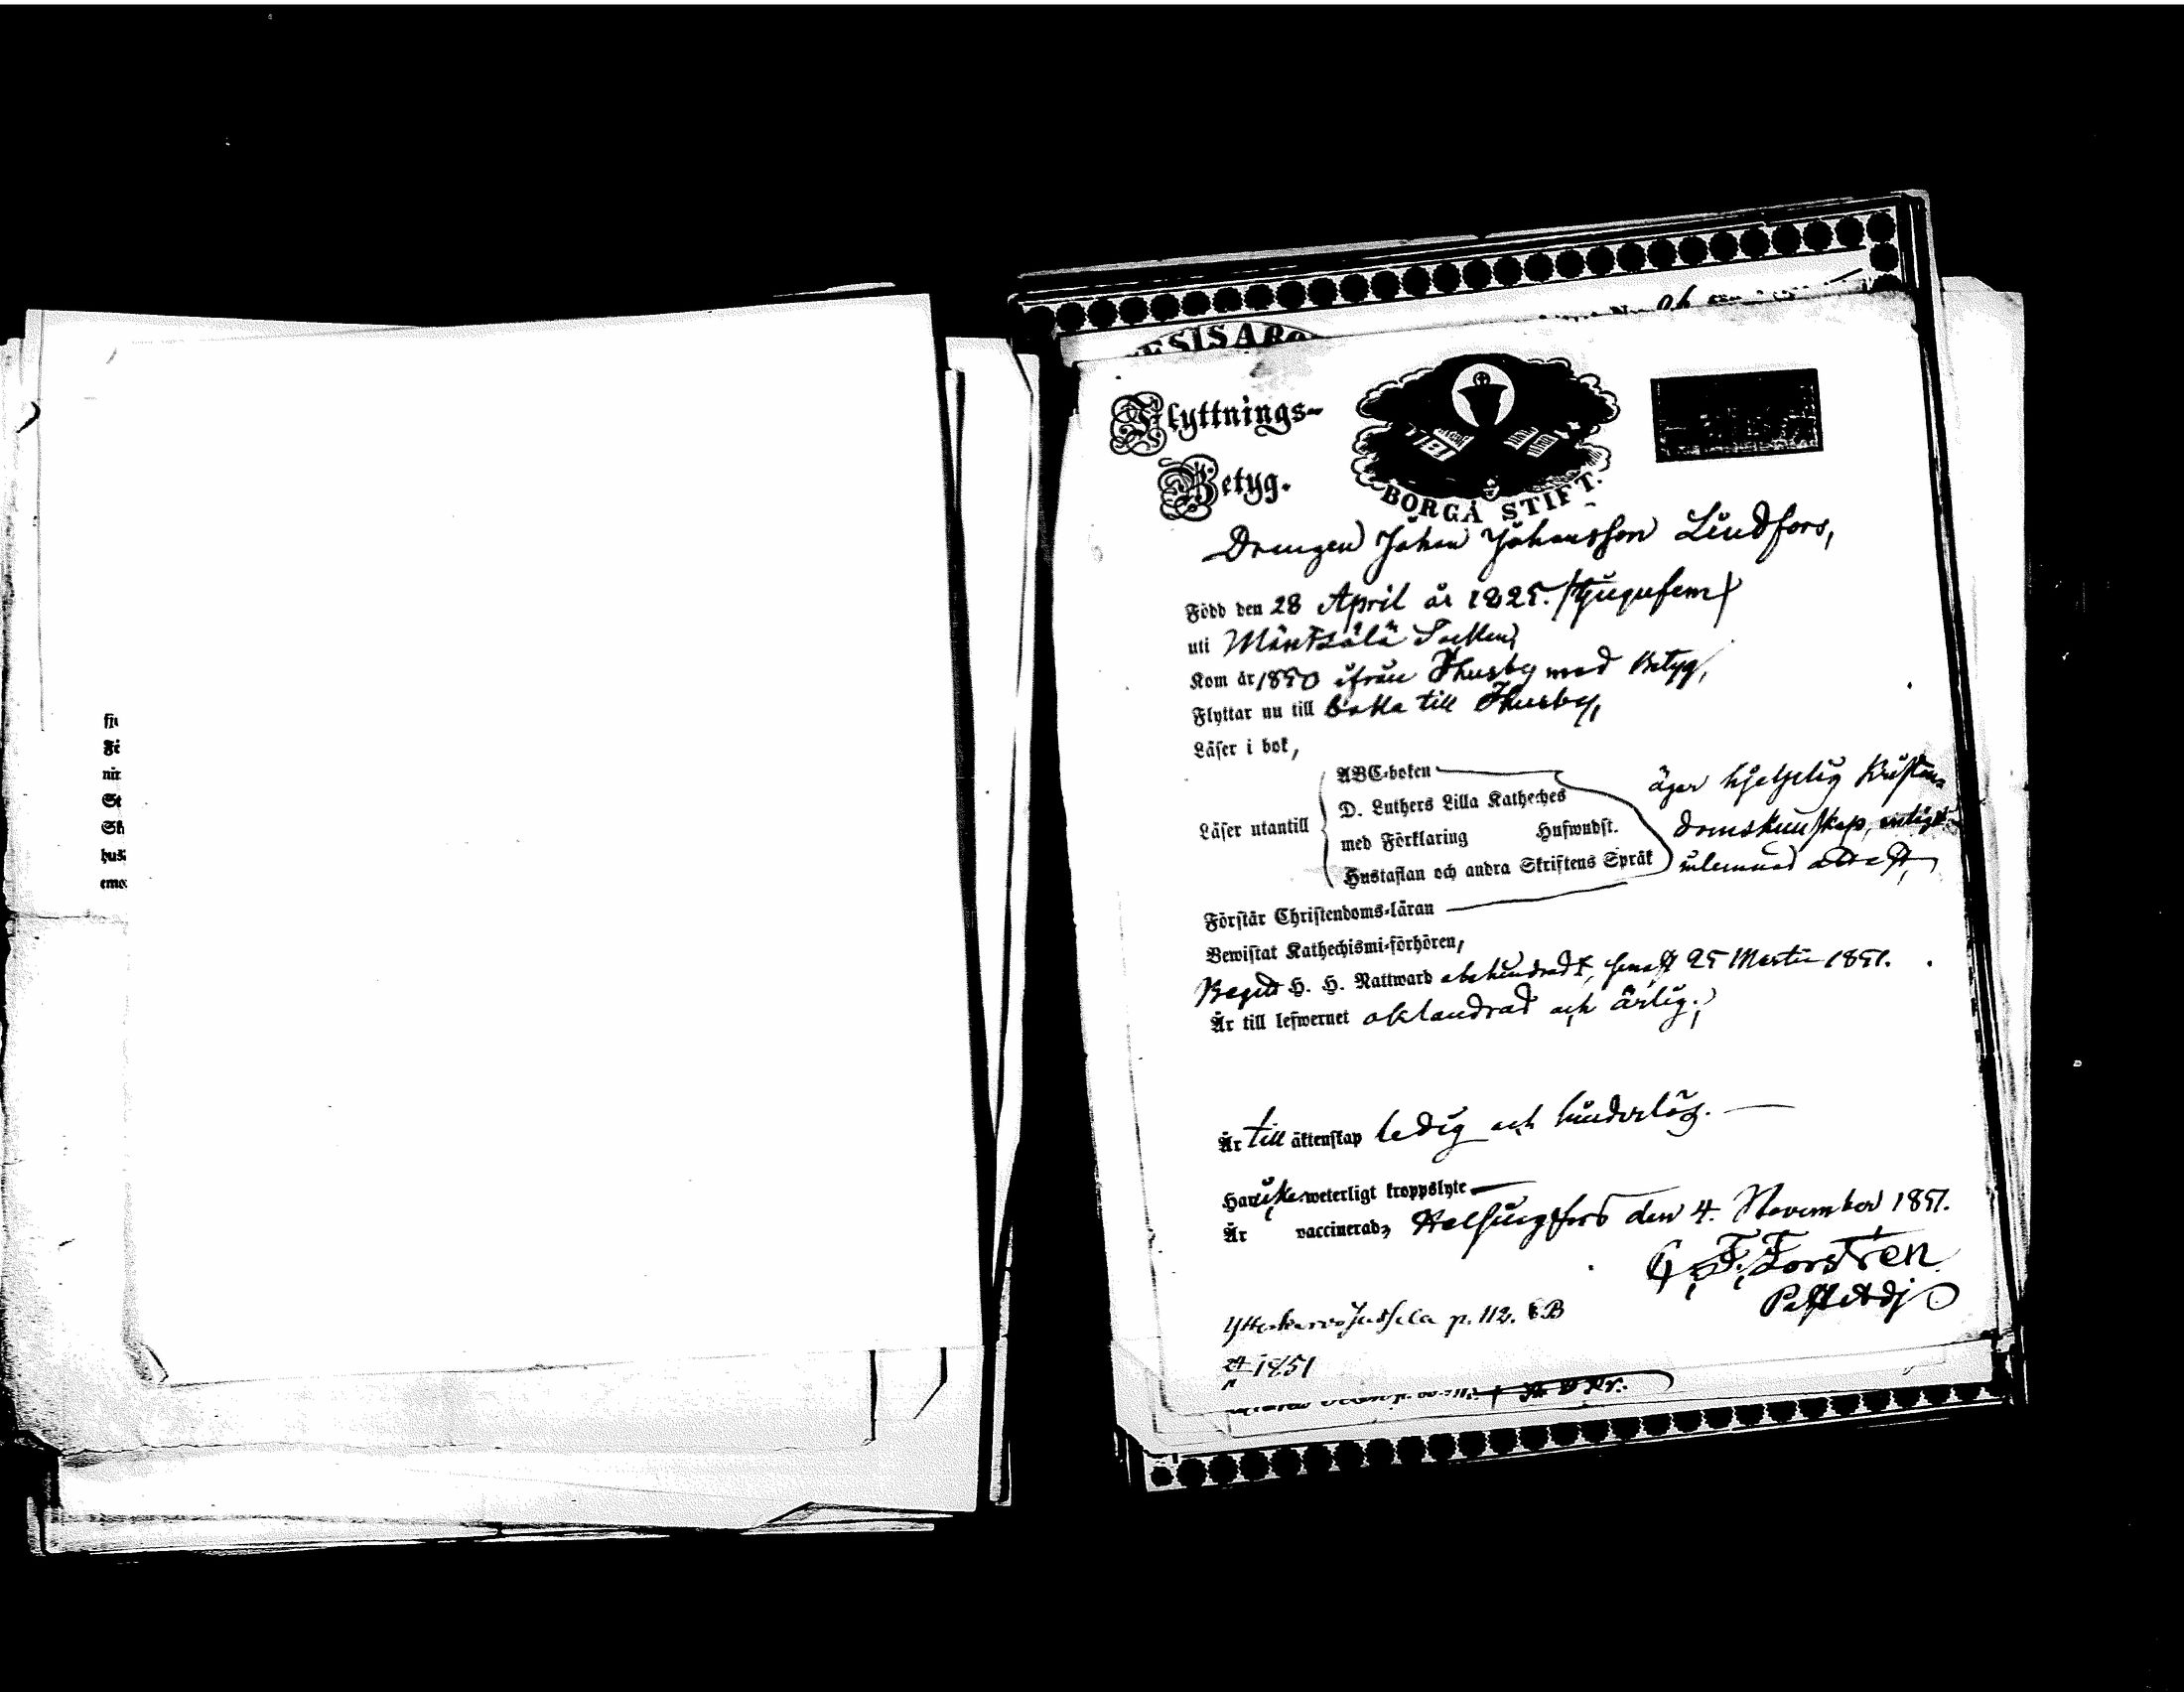 Flyttnings-
Betyg.
BORGÅ STIFT.
Drengen Johan Johansson Lindfors,
Född den 28 April år 1825. /tjugufem/
uti Mäntsälä Socken,
Kom år 1850 ifrån Thusby med betyg,
Flyttar nu till baka till Thusby,
Läser i bok,
Läser utantill
ABC-boken
D. Luthers Lilla Katheches
med Förklaring Huswudst.
Hustaflan och andra Skriftens Språk
äger hjelplig Kristen-
domskunskap, enligt
inlemnad attest,
Förstår Christendoms-läran
Bewistat Kathechismi-förhören,
Begått H. H. Nattward obehindradt, senast 25 Martii 1851.
Är till lefwernet oklandrad och ärlig;
Är till äktenskap ledig och hinderlös.
Har icke weterligt kroppslyte
Är vaccinerad, Helsingfors den 4. November 1851.
F. Forstren
Past Adj
p. 112. B
1851
fri
Fö
nir
St
Sk
hus
emo